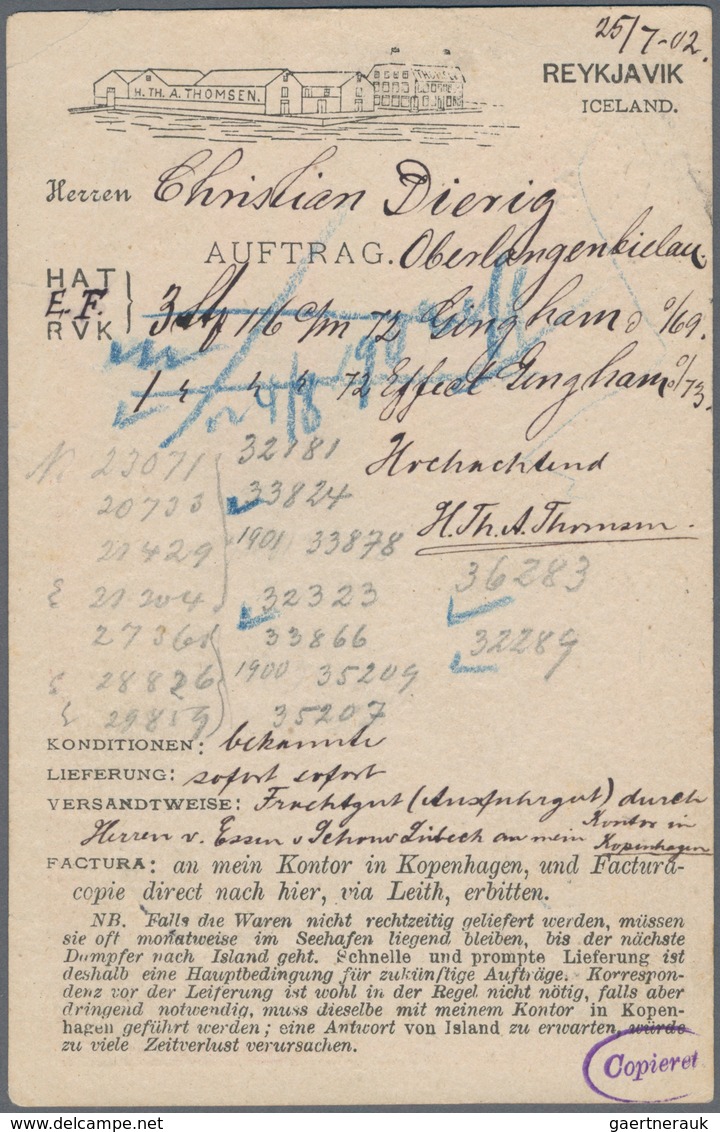 25/7-02.
REYKJAVIK
ICELAND.
H. TH. A. THOMSEN.
THOMSEN
Herren Christian Dierig
AUFTRAG. Oberlangenbielau.
HAT
E. F.
RVK
3 116 c/m 72 Gingham d 0/69.
1 72 Effect Gingham 0/73.
4/8
N. 23071 32181
20733 33824
21429 1901 33878
21204 32323 36283
27361 33866 32289
28826 1900 35209
29859 35207
Hochachtend
H. Th. A. Thomsen.
KONDITIONEN: bekannte
LIEFERUNG: sofort sofort
VERSANDTWEISE: Frachtgut (Ausfuhrgut) durch
Herren v. Essen & Schow Lübeck an mein Kontor in
Kopenhagen
FACTURA: an mein Kontor in Kopenhagen, und Factura-
copie direct nach hier, via Leith, erbitten.
NB. Falls die Waren nicht rechtzeitig geliefert werden, müssen
sie oft monatweise im Seehafen liegend bleiben, bis der nächste
Dampfer nach Island geht. Schnelle und prompte Lieferung ist
deshalb eine Hauptbedingung für zukünftige Aufträge. Korrespon-
denz vor der Leiferung ist wohl in der Regel nicht nötig, falls aber
dringend notwendig, muss dieselbe mit meinem Kontor in Kopen-
hagen geführt werden; eine Antwort von Island zu erwarten, würde
zu viele Zeitverlust verursachen.
Copieret
gaertnerauk